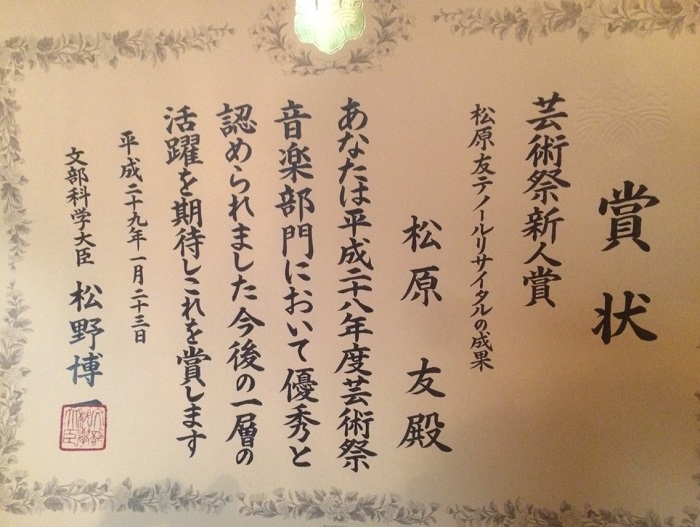 賞状
芸術祭新人賞
松原友テノールリサイタルの成果
松原 友殿
あなたは平成二十八年度芸術祭
音楽部門において優秀と
認められました今後の一層の
活躍を期待しこれを賞します
平成二十九年一月二十三日
文部科学大臣 松野博一